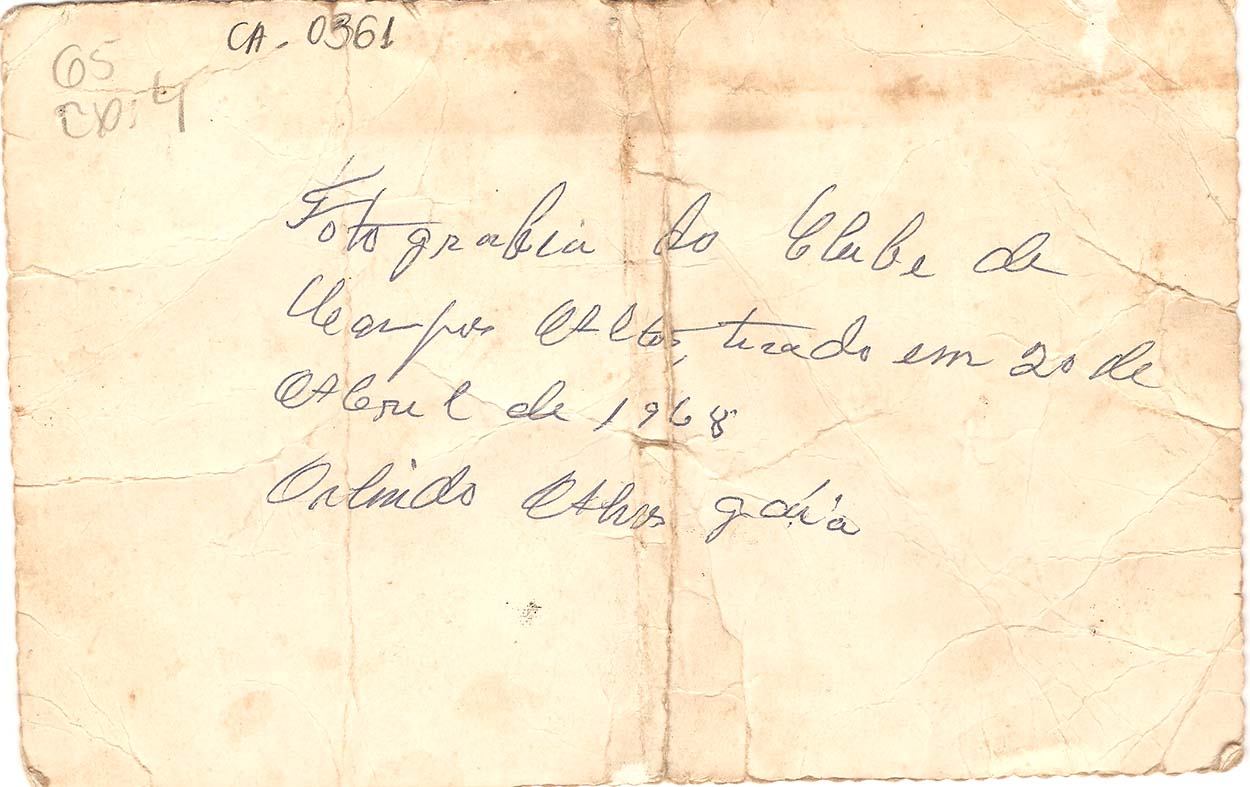 CA. 0361
65
cx. 4
Fotografia do Clube de
Campos Altos, tirado em 20 de
Abril de 1968
Orlindo Alves